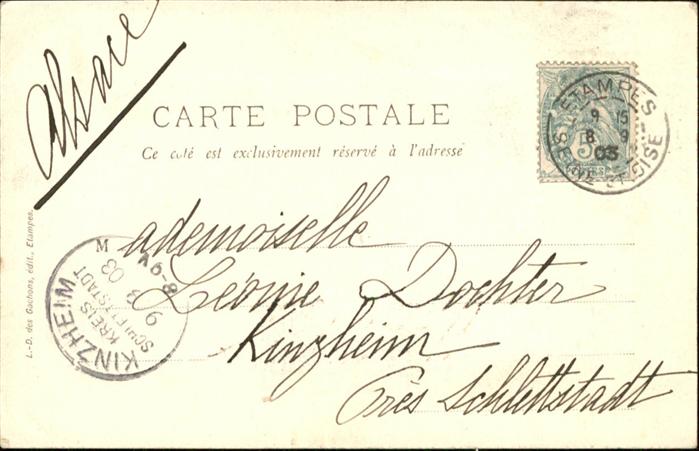 Alsace
CARTE POSTALE
Ce coté est exclusivement réservé à l'adresse
ETAMPES
9 15
8 9
03
SEINE-ET-OISE
5
L.-D. des Gachons, édit., Etampes.
Mademoiselle
Léonie Dochter
Kinzheim
Près Schlettstadt
KINZHEIM
KREIS
SCHLETTSTADT
9 3 03
8-9V